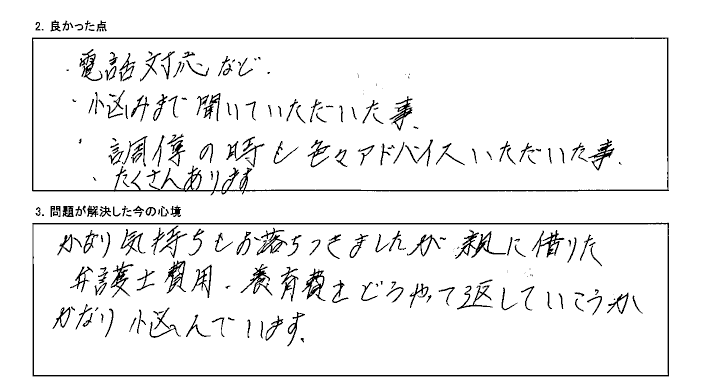 2. 良かった点
・電話対応など.
・悩みまで聞いていただいた事.
・調停の時も色々アドバイスいただいた事.
・たくさんあります
3. 問題が解決した今の心境
かなり気持ちもお落ちつきましたが 親に借りた
弁護士費用・養育費をどうやって返していこうか
かなり悩んでいます.